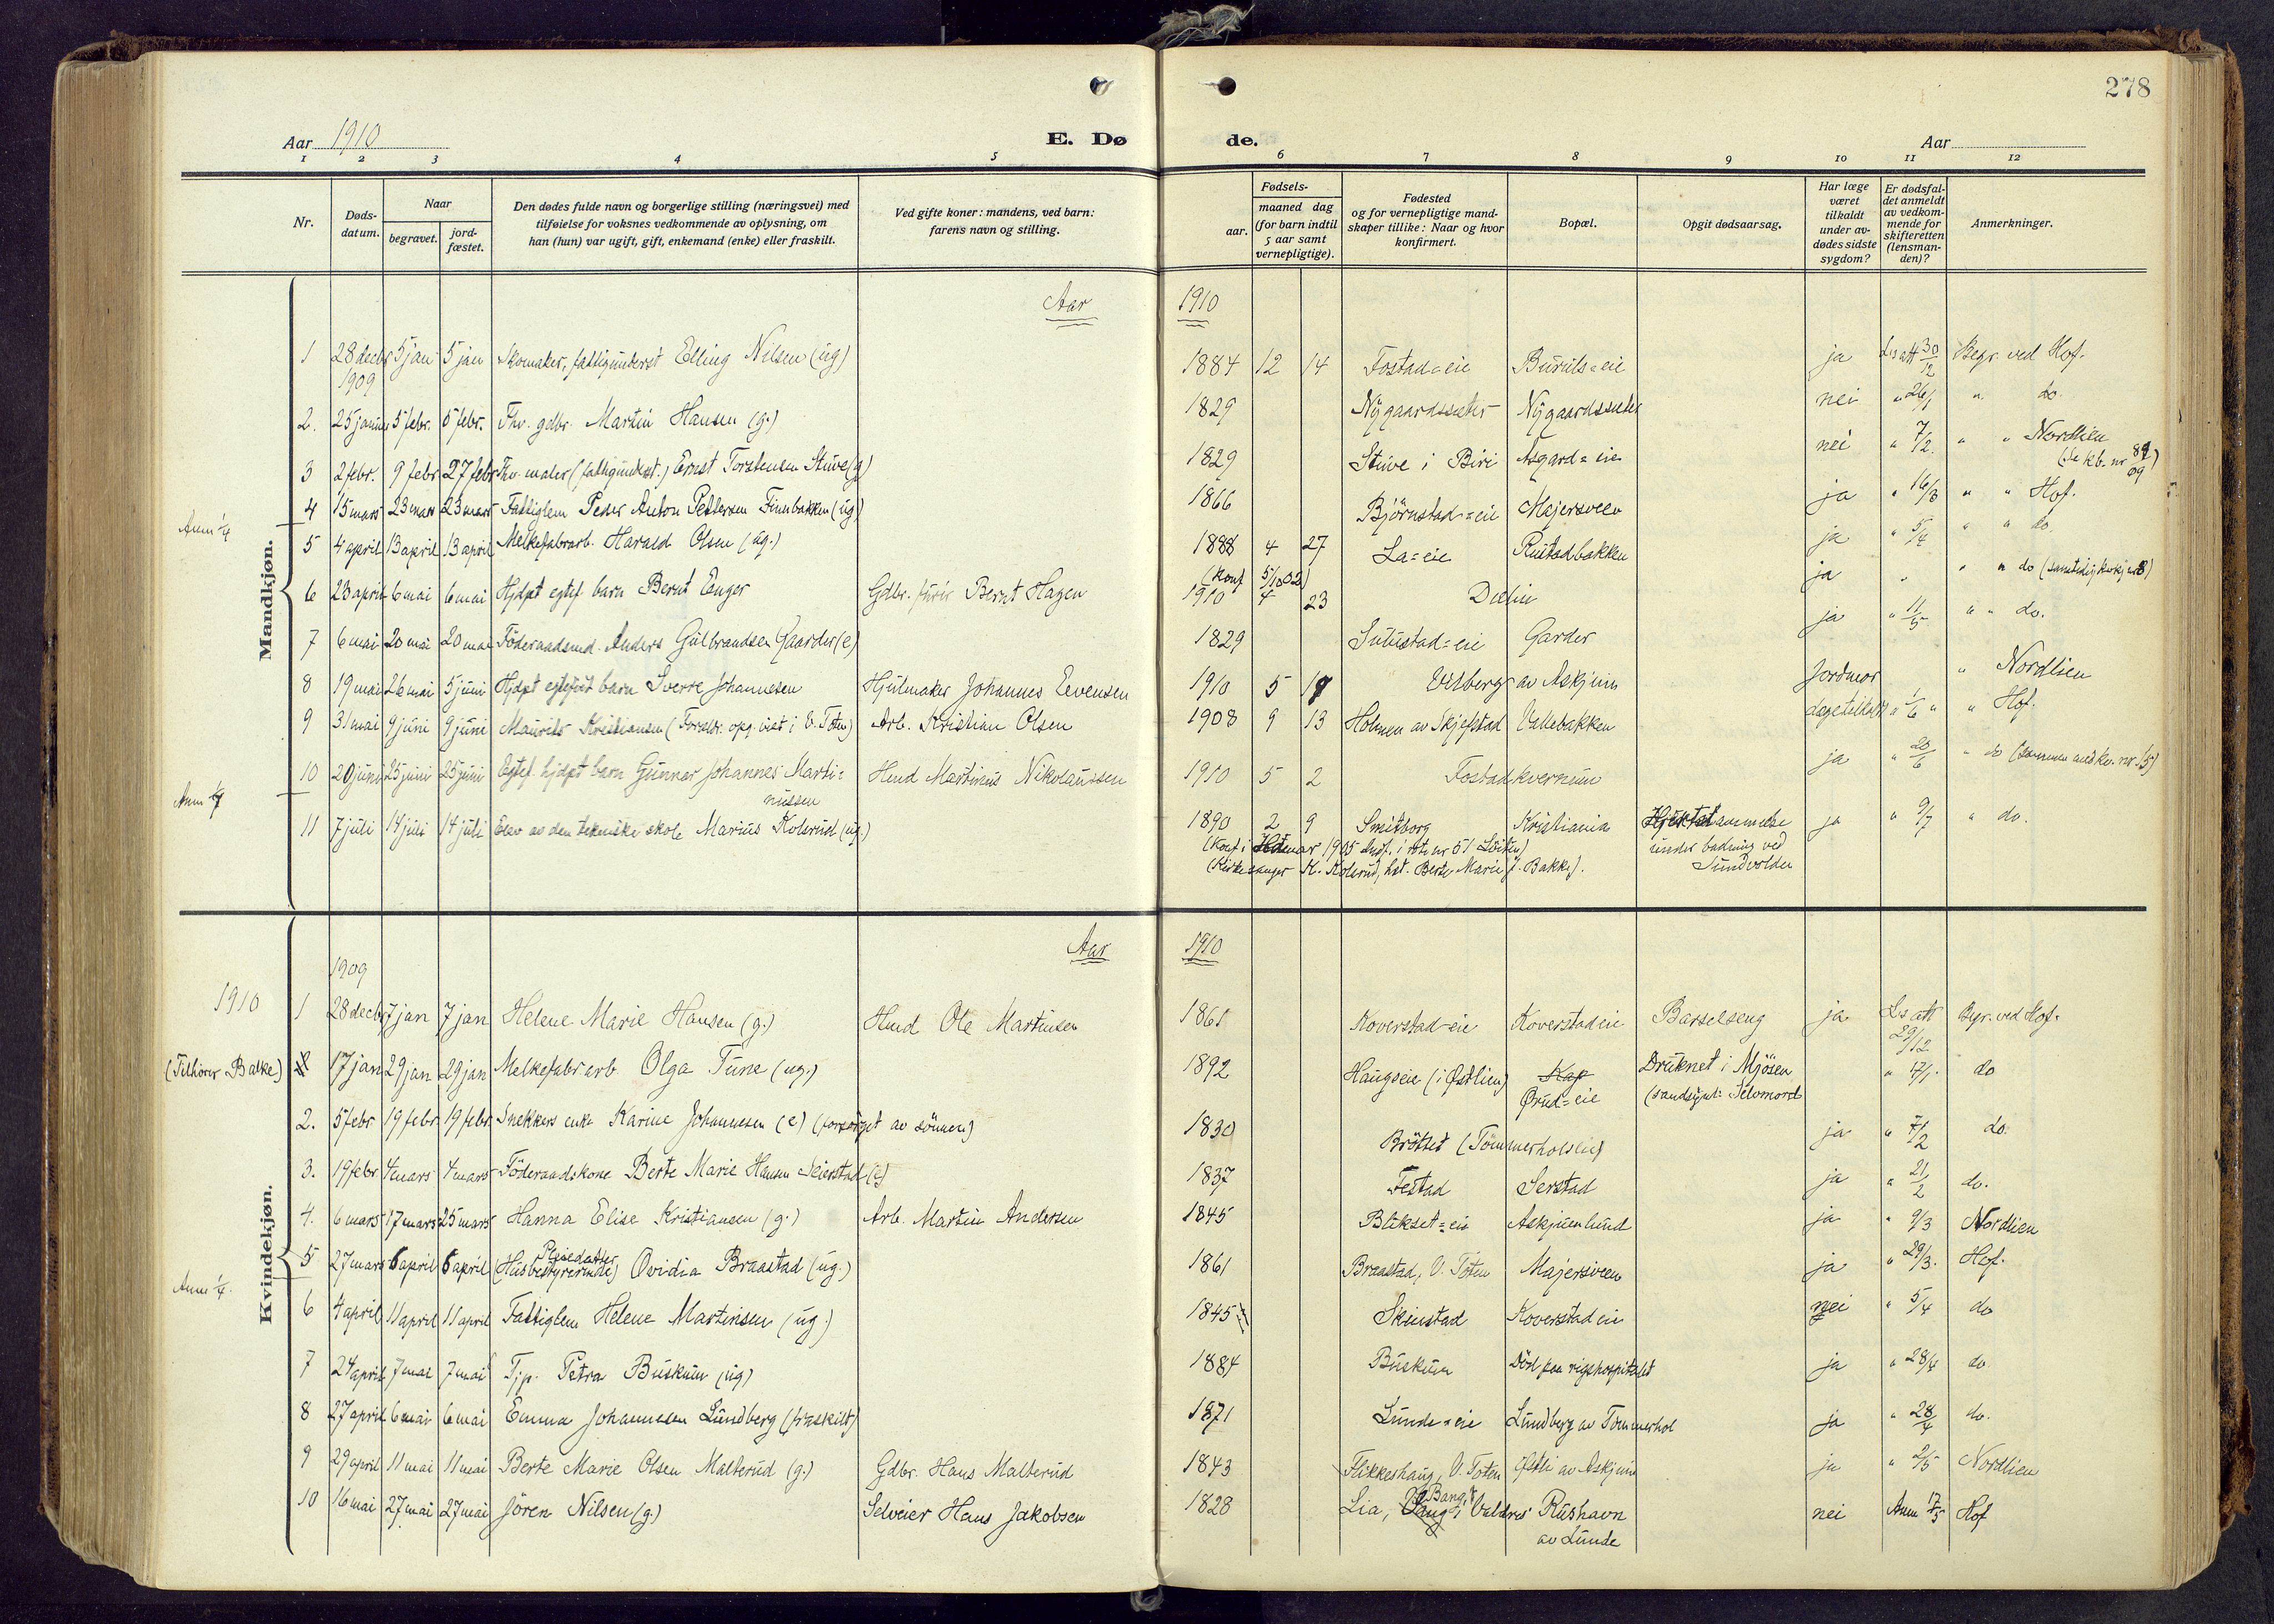 278
Aar 1910
E. Dø
de.
Aar
1 2 3 4 5 6 7 8 9 10 11 12
Nr.
Døds-
datum.
Naar
begravet.
jord-
fæstet.
Den dødes fulde navn og borgerlige stilling (næringsvei) med
tilføielse for voksnes vedkommende av oplysning, om
han (hun) var ugift, gift, enkemand (enke) eller fraskilt.
Ved gifte koner: mandens, ved barn:
farens navn og stilling.
Fødsels-
aar.
maaned dag
(for barn indtil
5 aar samt
vernepligtige).
Fødested
og for vernepligtige mand-
skaper tillike: Naar og hvor
konfirmert.
Bopæl.
Opgit dødsaarsag.
Har læge
været
tilkaldt
under av-
dødes sidste
sygdom?
Er dødsfal-
det anmeldt
av vedkom-
mende for
skifteretten
(lensman-
den)?
Anmerkninger.
Mandkjøn.
Aar 1910
1 28 decbr 5 jan 5 jan Skomaker, fattigunderst. Elling Nilsen (ug) 1884 12 14 Fostad=eie Buruls=eie ja Ls att 30/12 Begr. ved Hof.
1909
2. 25 januar 5 febr. 5 febr. Fhv. gdbr. Martin Hansen (g.) 1829 Nygaardssæter Nygaardssæter nei " 26/1 " do.
3 2 febr. 9 febr 27 febr Fhv. maler (fattigunderst.) Ernst Torstensen Stuve (g) 1829 Stuve i Biri Asgard=eie nei " 7/2. " " Nordlien
(Se kb. nr 89/09)
4 15 mars 23 mars 23 mars Fattiglem Peder Anton Pettersen Finnbakken (ug) 1866 Bjørnstad=eie Majersveen ja " 16/3 " " Hof.
Anm 1/4
5 4 april 13 april 13 april Melkefabrarb. Harald Olsen (ug.) 1888 4 27 La=eie Rustadbakken ja " 5/4 " " do.
(Konf 5/10 02)
6 23 april 6 mai 6 mai Hjdpt egtef. barn Bernt Enger Gdbr. Bernt Hagen 1910 4 23 Dælin ja " " " do (samtidig kvkj nr 8)
7 6 mai 20 mai 20 mai Föderaadsmd. Anders Gulbrandsen Gaarder (e) 1829 Sulustad=eie Garder ja " 11/5 " " do.
8 19 mai 26 mai 5 juni Hjdpt egtefödt barn Sverre Johannesen Hjulmaker Johannes Evensen 1910 5 18 Vilberg av Askjum Jordmor " Nordlien
9 31 mai 9 juni 9 juni Maurits Kristiansen (Foreldr. opg. viet i V. Toten) Arb. Kristian Olsen 1908 9 13 Holmen av Skjefstad Vallebakken lægetilkaldt " 1/6 " " Hof.
10 20 juni 25 juni 25 juni Egtef. hjdpt barn Gunnar Johannes Marti=
nussen Hmd Martinus Nikolaussen 1910 5 2 Fostadkvernum ja " 20/6 " do (sammen med kv. nr. 15)
Anm 1/7
11 7 juli 14 juli 14 juli Elev av den tekniske skole Marius Kolsrud (ug.) 1890 2 9 Smitborg Kristiania Hjertelammelse ja " 9/7 " do.
(Konf. i Hedemar 1905 Indf. i rote nr 51 Löiten) under badning ved
(Kirkesanger K. Kolsrud, hst. Berte Marie f. Bakke). Sundvolden
Kvindekjøn.
Aar 1910
1909
1910
1 28 decb 7 jan 7 jan Helene Marie Hansen (g.) Hmd Ole Martinsen 1861 Koverstad=eie Koverstadeie Barselseng ja Ls att 29/12 Begr. ved Hof.
(Tilhörer Balke) 17 jan 29 jan 29 jan Melkefabrarb. Olga Tune (ug.) 1892 Haugseie (i Østlien) Kap Druknet i Mjösen " 17/1. do
Ørud=eie (sandsynl. Selvmord
2. 5 febr 19 febr. 19 febr. Snekkers enke Karine Johannesen (e) (forsörget av sönnen) 1830 Bröttet (Tömmerholslie) ja " 7/2 do.
3. 19 febr. 4 mars 4 mars Föderaadskone Berte Marie Hansen Seierstad (e) 1837 Festad Serstad ja " 21/2 do.
4. 6 mars 17 mars 25 mars Hanna Elise Kristiansen (g.) Arb. Martin Andersen 1845 Blikset=eie Askjumlund ja " 9/3 Nordlien
Pleiedatter
5 27 mars 6 april 6 april (Husbestyrerinde) Ovidia Braastad (ug.) 1861 Braastad, V. Toten Majersveen ja " 29/3. Hof.
Anm 1/4.
6 4 april 11 april 11 april Fattiglem Helene Martinsen (ug.) 1845 Skinstad Koverstadeie nei " 5/4 do
7 24 april 7 mai 7 mai Tjp. Petra Buskum (ug) 1884 Buskum Död paa rigshospitalet ja " 28/4 do.
8 27 april 6 mai 6 mai Emma Johannesen Lundberg (fraskilt) 1871 Lunde=eie Lundberg av Tömmerhol ja " 28/4 do.
9 29 april 11 mai 11 mai Berte Marie Olsen Malterud (g.) Gdbr. Hans Malterud 1843 Flikkeshaug, V. Toten Østli av Askjum ja " 2/5 Nordlien
10 16 mai 27 mai 27 mai Jören Nilsen (g.) Selveier Hans Jakobsen 1828 Lia, Bang, i Valdres Rushavn nei Anm 17/5 Hof
av Lunde